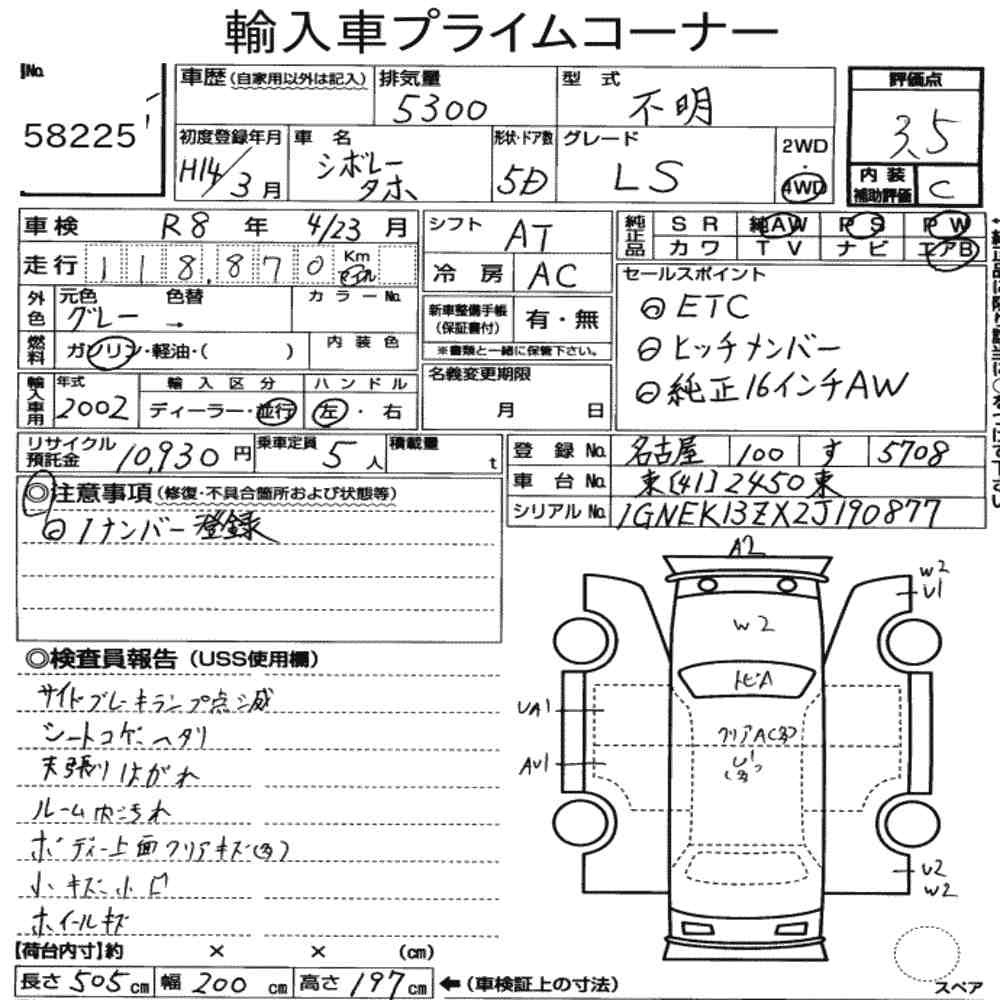 輸入車プライムコーナー
No.
58225
車歴(自家用以外は記入)
排気量
5300
型式
不明
評価点
3.5
初度登録年月
H14/3月
車名
シボレー
タホ
形状・ドア数
5D
グレード
LS
2WD
・
4WD
内装
補助評価
C
車検 R8年 4/23月
走行 118,870 Km
マイル
シフト AT
冷房 AC
純正品
SR 純AW PS PW
カワ TV ナビ エアB
セールスポイント
◎ETC
◎ヒッチメンバー
◎純正16インチAW
外色
元色 色替
グレー →
カラーNo.
燃料
ガソリン・軽油・( )
内装色
新車整備手帳
(保証書付)
有・無
※書類と一緒に保管下さい。
輸入車用
年式
2002
輸入区分
ディーラー・並行
ハンドル
左・右
名義変更期限
月 日
リサイクル
預託金
10,930円
乗車定員
5人
積載量
t
登録No. 名古屋 100 す 5708
車台No. 東[41]2450東
シリアルNo. 1GNEK13ZX2J190877
◎注意事項(修復・不具合箇所および状態等)
◎1ナンバー登録
◎検査員報告(USS使用欄)
サイドブレーキランプ点滅
シートコゲ・ヘタリ
天張りはがれ
ルーム内汚れ
ボディー上面クリアキズ(多)
小キズ、小凹
ホイールキズ
A2
W2
U1
W2
トビA
クリアA(多)
U1
(多)
UA1
AU1
U2
W2
スペア
【荷台内寸】約 × × (cm)
長さ 505cm 幅 200cm 高さ 197cm ←(車検証上の寸法)